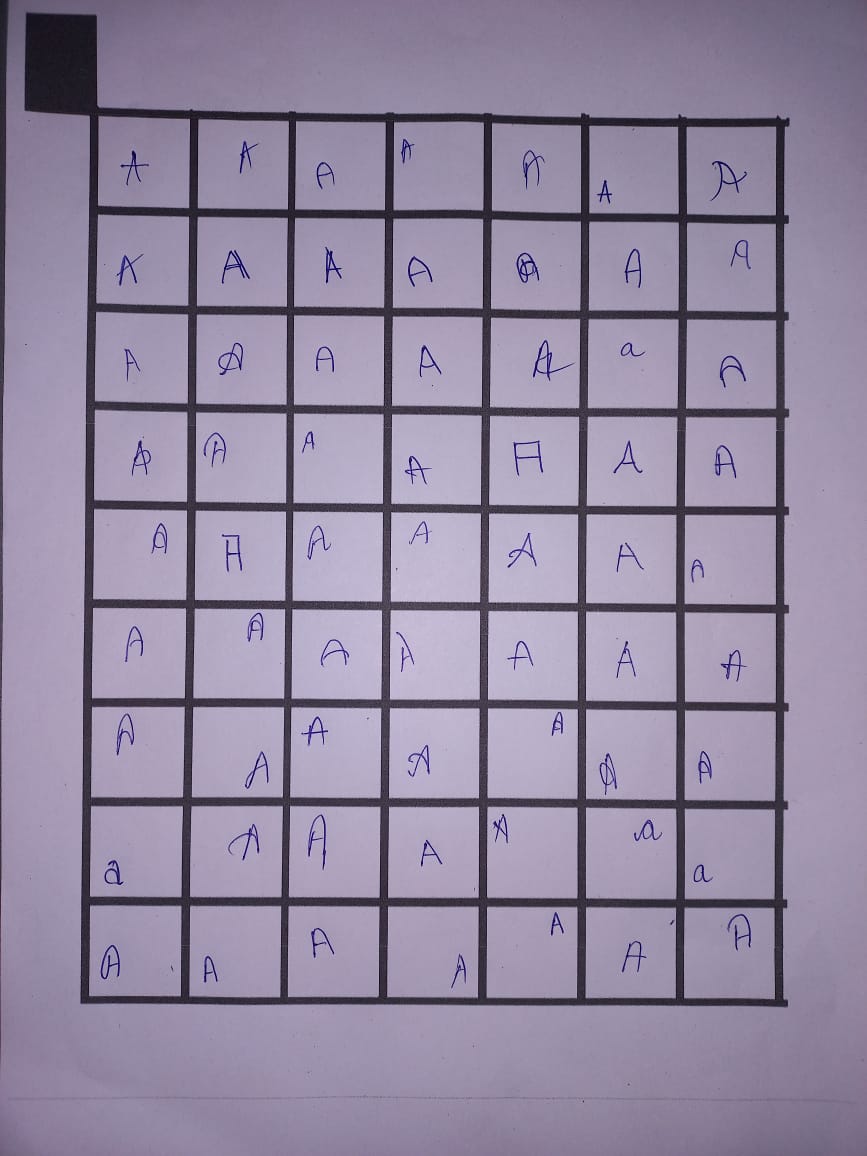 A A A A A A A
A A A A A A A
A A A A A a A
A A A A A A A
A A A A A A A
A A A A A A A
A A A A A A A
a A A A A a a
A A A A A A A